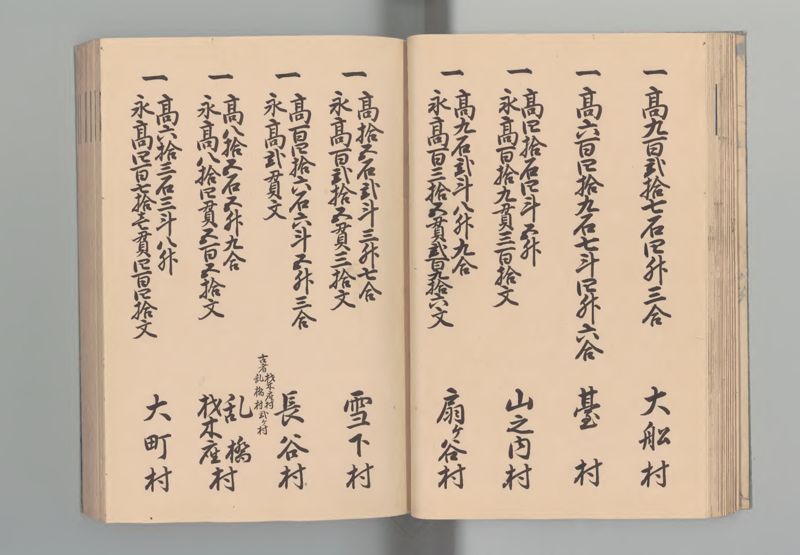 一高九百弐拾七石四升三合 大船村
一高六百四拾九石七斗四升六合 臺村
一高四拾石四斗五升
永高百拾九貫三百拾文 山之内村
一高九石弐斗八升九合
永高百三拾五貫弐百九拾六文 扇ヶ谷村
一高拾五石弐斗三升七合
永高百弐拾五貫三拾文 雪下村
一高百四拾六石六斗五升三合
永高弐貫文 長谷村
古者材木座村
乱橋村弐ヶ村
一高八拾五石五升九合 乱橋
永高八拾四貫五百五拾文 材木座村
一高六拾三石三斗八升
永高四百七拾七貫四百四拾文 大町村